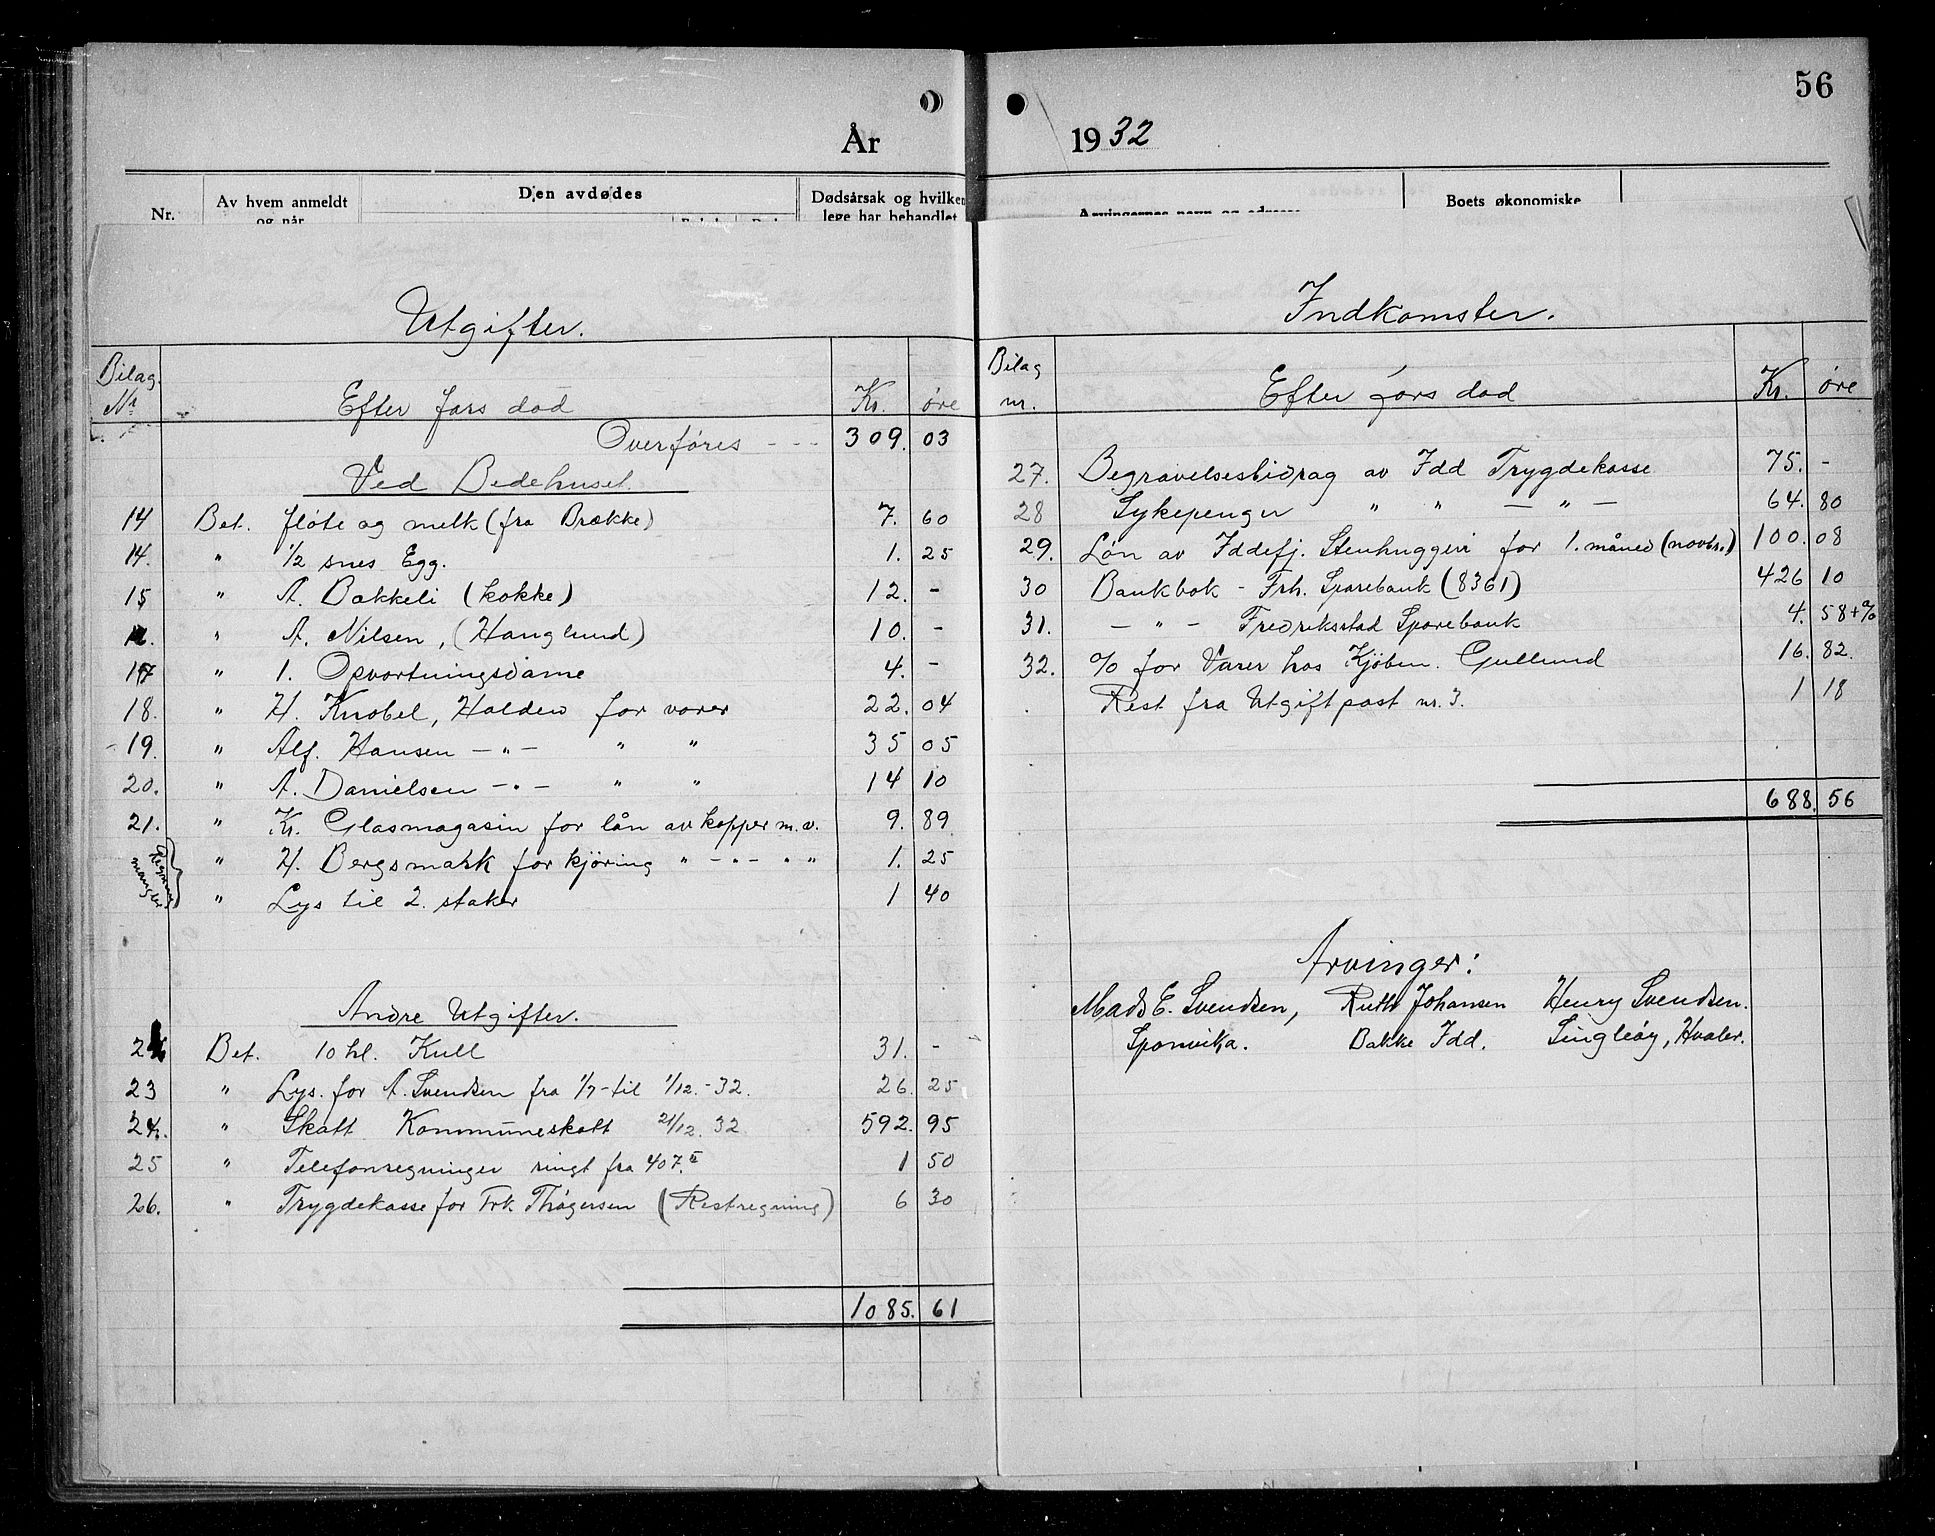 56
År 1932
Nr. Av hvem anmeldt og når Den avdødes Dødsårsak og hvilken lege har behandlet Arvingernes navn og adresse Boets økonomiske
Utgifter.
Bilag. Nr Efter fars död Kr. øre
Overføres - - - 309. 03
Ved Bedehuset.
14 Bet. fløte og melk (fra Brække) 7. 60
14. " 1/2 snes Egg. 1. 25
15 " A. Bakkeli (kokke) 12. -
" A. Nilsen, (Hanglund) 10. -
17 " 1. Opvortningsdame 4. -
18. " H. Knobel, Halden for varer 22. 04
19. " Alf. Hansen - " - " " 35 05
20. " A. Danielsen - " - " " 14 10
21. " Kr. Glasmagasin for lån av kopper m.v. 9. 89
mangler " H. Bergsmark for kjöring " - " - " " 1. 25
" Lys til 2. staker 1 40
Andre Utgifter.
Bet. 10 hl. Kull 31. -
23 " Lys. for A. Svendsen fra 1/7 - til 1/12. - 32. 26. 25
24. " Skatt Kommuneskatt 21/12. 32 592. 95
25 " Telefonregninger ringt fra 407.II 1 50
26. " Trygdekasse for Frk. Thøgersen (Restregning) 6 30
1085. 61
Indkomster.
Bilag nr. Efter fars död Kr. øre
27. Begravelsesbidrag av Idd Trygdekasse 75. -
28 Sykepenger " " - " - 64. 80
29. Løn av Iddefj. Stenhuggeri for 1. måned (novbr.) 100. 08
30 Bankbok - Frh. Sparebank (8361) 426 10
31. - " - Fredriksstad Sparebank 4. 58 + %
32. % for Varer hos Kjöbm. Gullund 16. 82.
Rest fra Utgiftpost nr. 3. 1 18
688. 56
Arvinger:
Mads E. Svendsen, Ruth Johansen Henry Svendsen.
Sponvika. Bakke Idd. Singleöy, Hvaler.